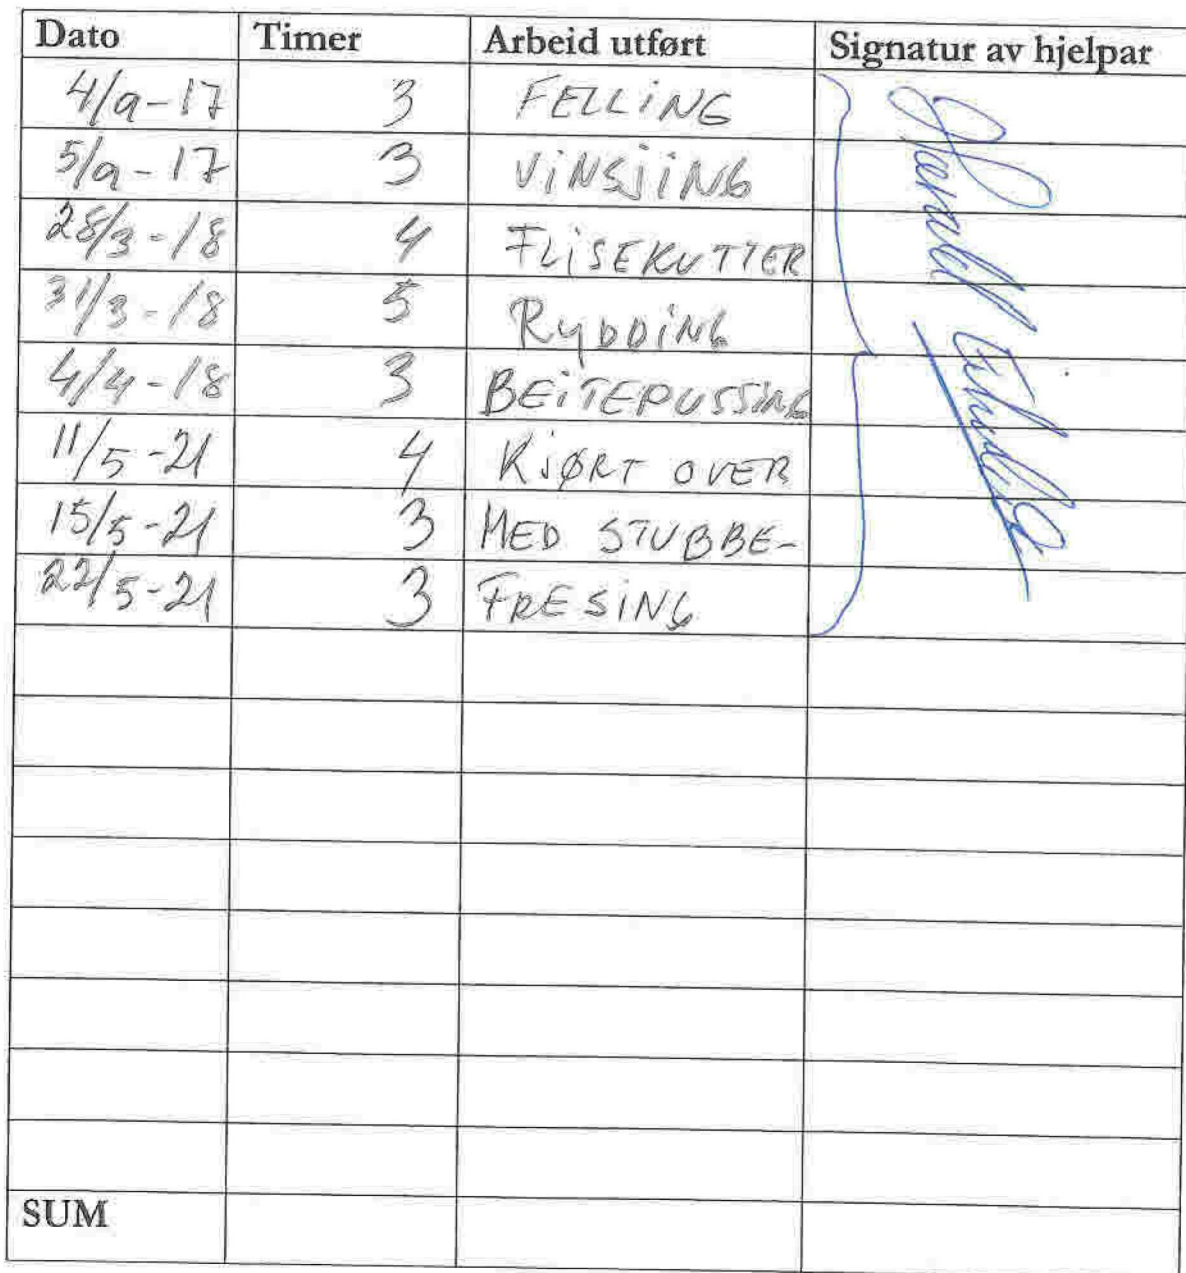 Dato Timer Arbeid utført Signatur av hjelpar
4/9-17 3 FELLING
5/9-17 3 VINSJING
28/3-18 4 FLISEKUTTER
31/3-18 5 RYDDING
4/4-18 3 BEITEPUSSING
11/5-21 4 KJØRT OVER
15/5-21 3 MED STUBBE-
22/5-21 3 FRESING
SUM